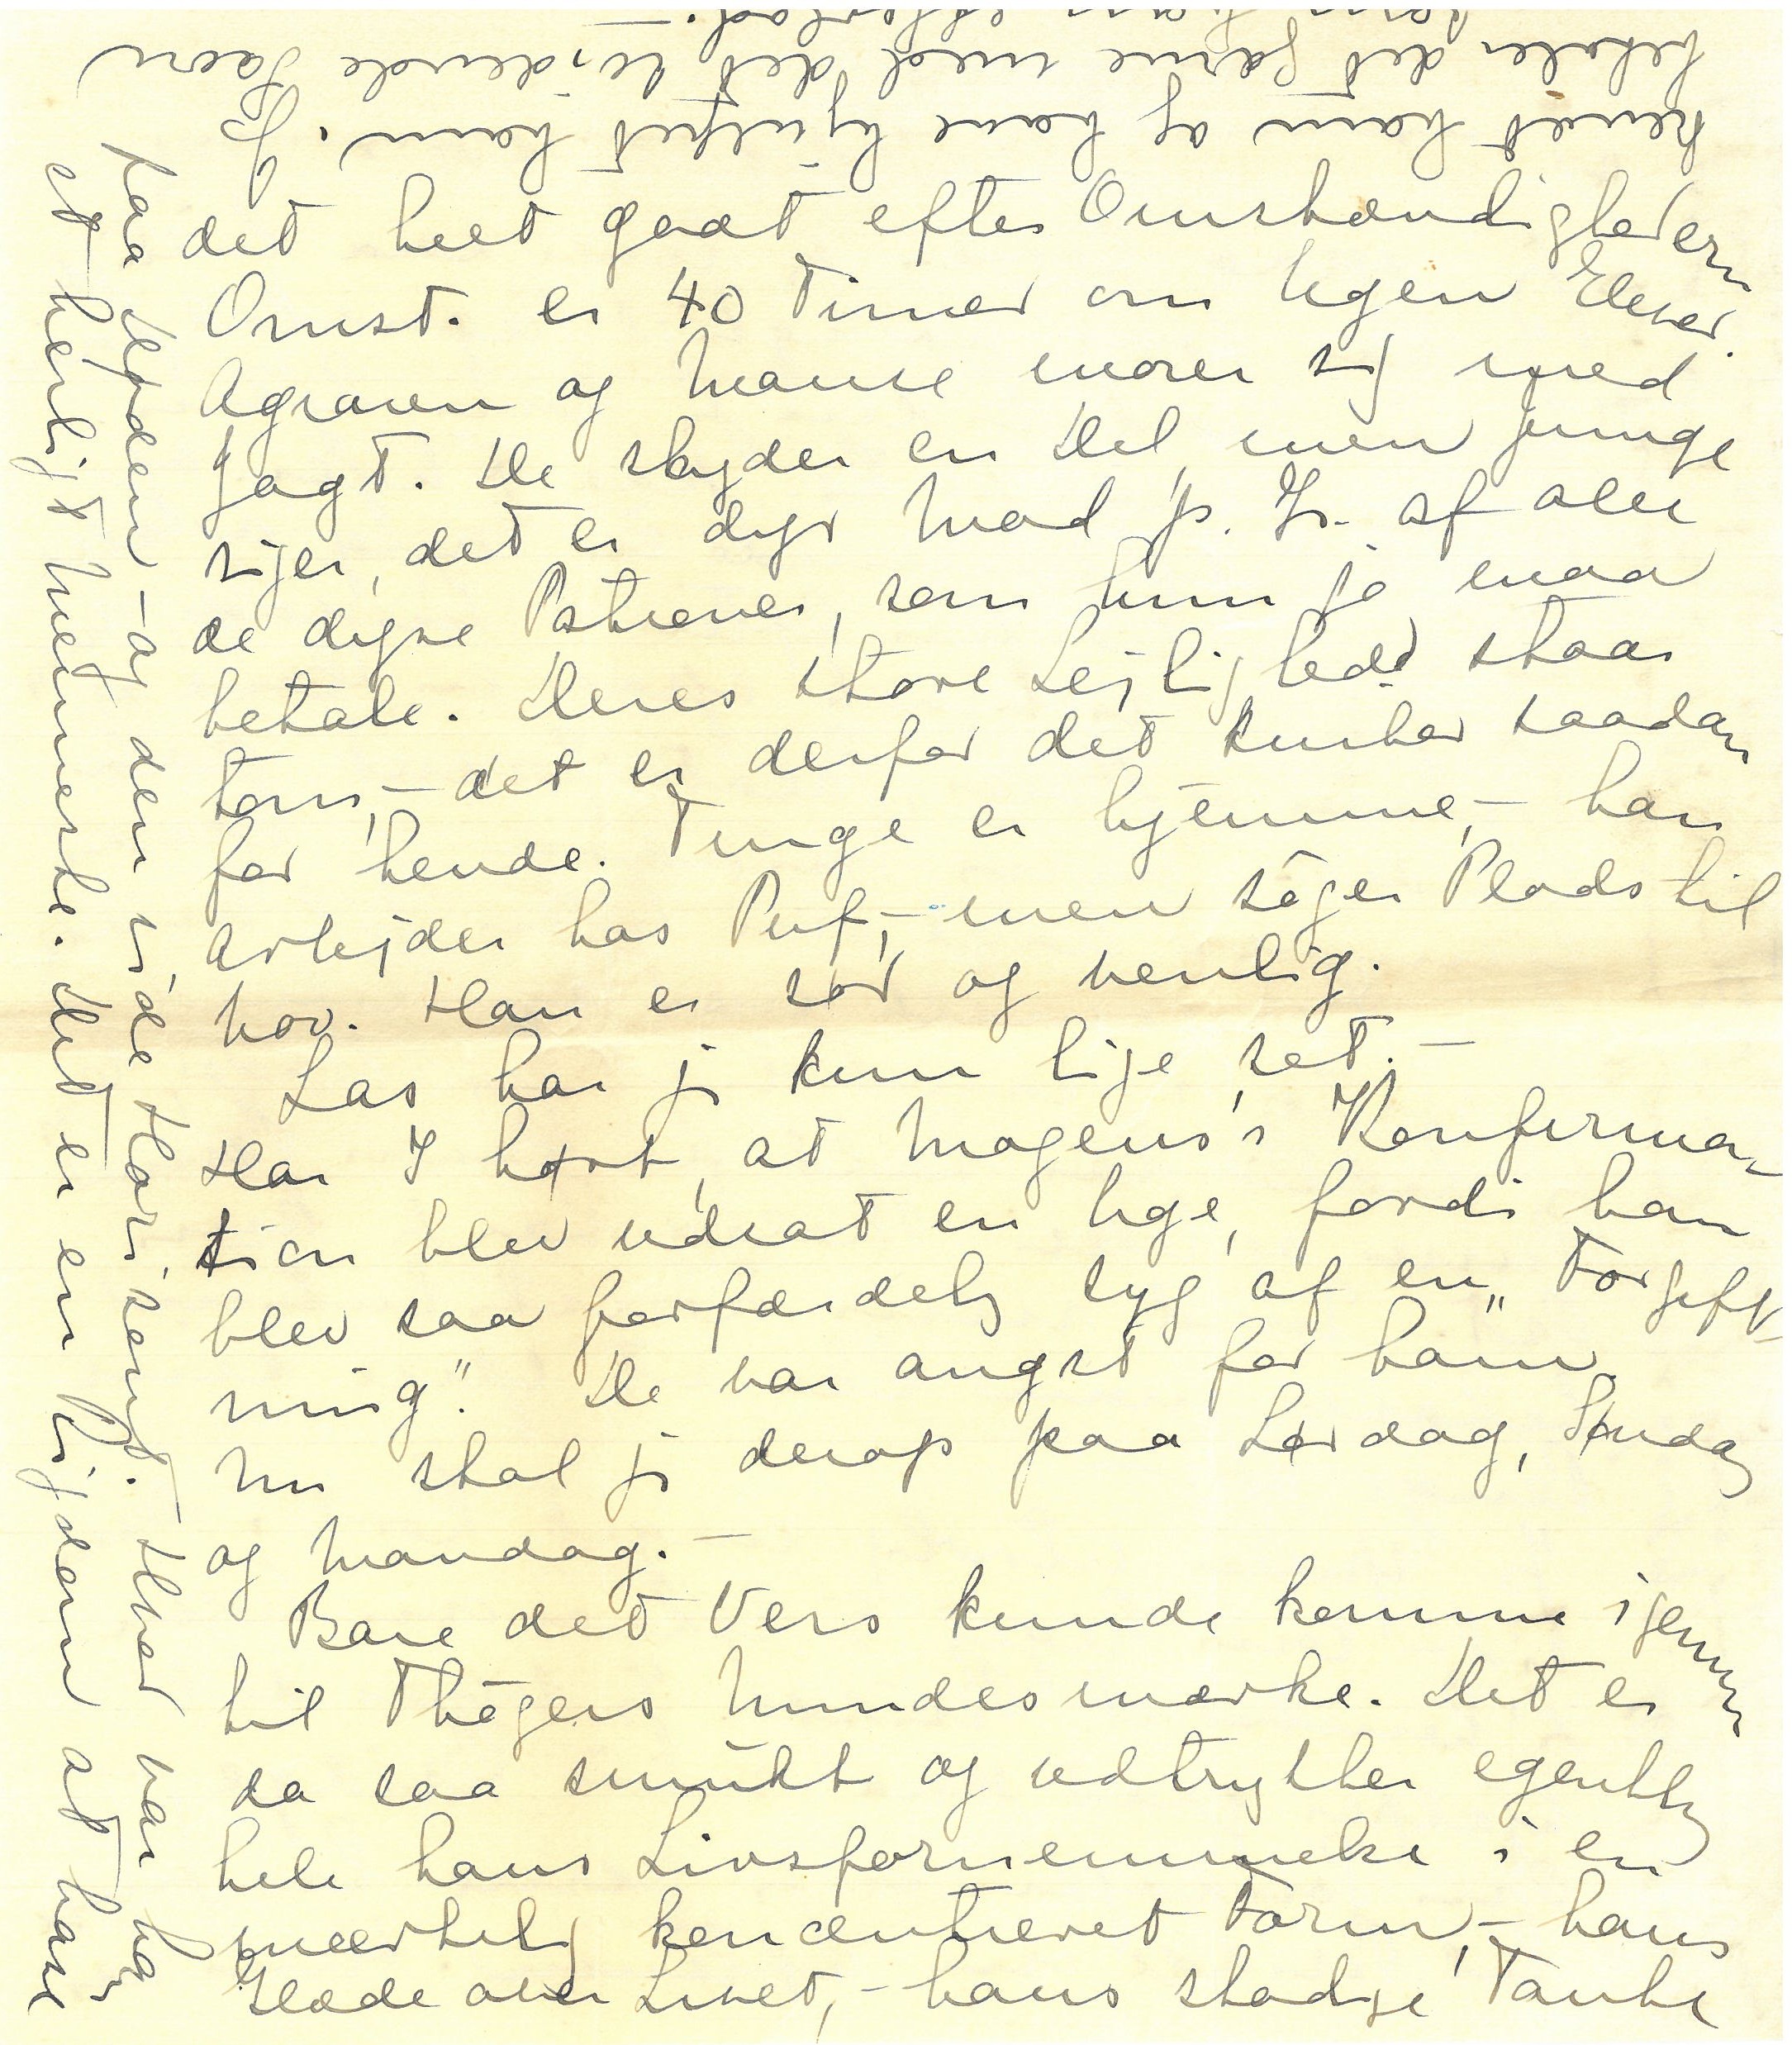 det helt godt efter Omstændighederne
Omst. er 40 Timer om Ugen Elever.
Agraren og Manse morer sig med
Jagt. De skyder en Del, men Junge
siger, det er dyr Mad p. Gr. af alle
de dyre Patroner, som hun jo maa
betale. Deres store Lejlighed staar
tom, – det er derfor det kniber saadan
for hende. Tinge er hjemme, – han
arbejder hos Puf, – men søger Plads til
Nov. Han er sød og venlig.
Las har jeg kun lige set. –
Har I hørt, at Mogens's Konfirma-
tion blev udsat en Uge, fordi han
blev saa forfærdelig syg af en „Forgift-
ning". De var angst for ham.
Nu skal jeg derop paa Lørdag, Søndag
og Mandag. –
Bare det Vers kunde komme igennem
til Thøgers Mindesmærke. Det er
da saa smukt og udtrykker egentlig
hele hans Livsfornemmelse i en
mærkelig koncentreret Form, – hans
Glæde over Livet, – hans stadige Tanke
paa Døden – og den vide Horisont. Hvor var han
et herligt Menneske. Det er en Rigdom at have
kendt ham og have hjulpet ham. Jeg
betaler det gerne med det lidende Savn
som han efterlod. –